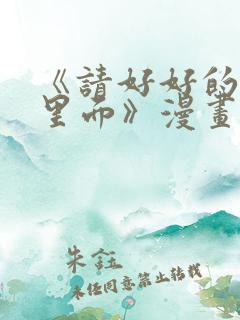 《請好好的
里面》漫畫
朱鈺
未经同意禁止转载